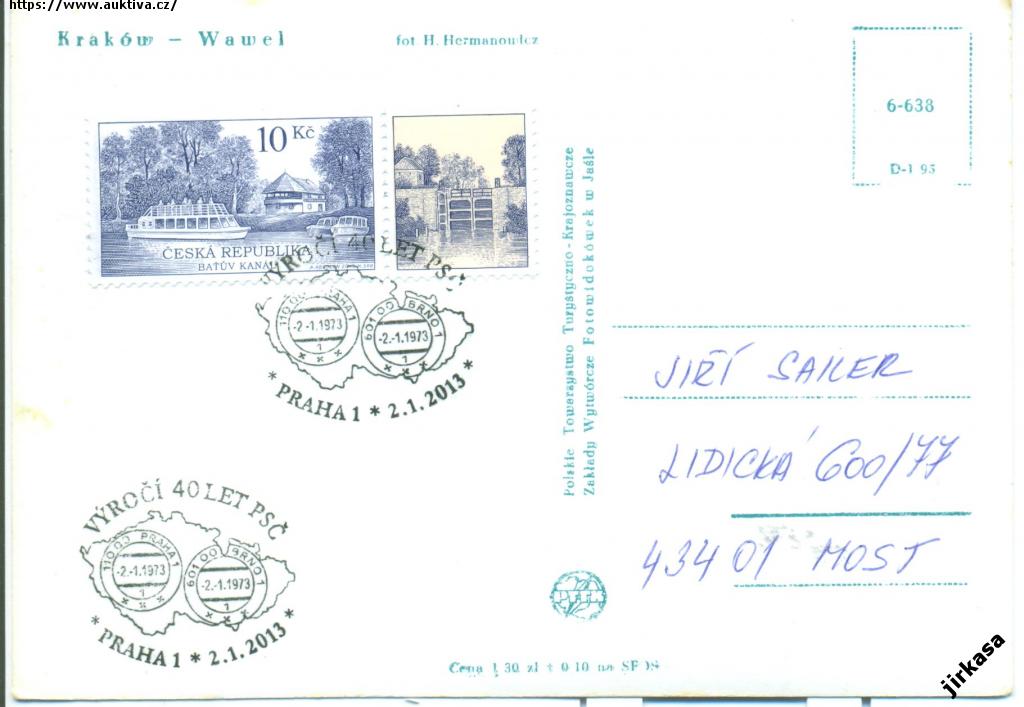 https://www.auktiva.cz/
Kraków – Wawel
fot H. Hermanowicz
6-638
D-1 95
10 Kč
ČESKÁ REPUBLIKA
BAŤŮV KANÁL
VÝROČÍ 40 LET PSČ
110 00 PRAHA 1
-2.-1.1973
1
601 00 BRNO 1
-2.-1.1973
1
* PRAHA 1 * 2.1.2013 *
Polskie Towarzystwo Turystyczno-Krajoznawcze
Zakłady Wytwórcze Fotowidokówek w Jaśle
JIŘÍ SAILER
LIDICKÁ 600/77
434 01 MOST
VÝROČÍ 40 LET PSČ
110 00 PRAHA 1
-2.-1.1973
1
601 00 BRNO 1
-2.-1.1973
1
* PRAHA 1 * 2.1.2013 *
PTTK
Cena 1 30 zł + 0 10 na SFOS
jirkasa